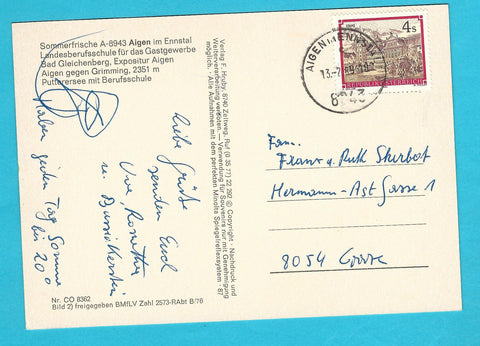 Sommerfrische A-8943 Aigen im Ennstal
Landesberufsschule für das Gastgewerbe
Bad Gleichenberg, Expositur Aigen
Aigen gegen Grimming, 2351 m
Putterersee mit Berufsschule
Liebe Grüße
senden Euch
Uwe, Roswitha
u.
Haben jeden Tag Sonne
bis 20°
Nr. CO 8362
Bild 2) freigegeben BMfLV Zahl 2573-RAbt B/76
Verlag F. Hruby, 8740 Zeltweg, Ruf (0 35 77) 22 262 © Copyright - Nachdruck und
Weiterverarbeitung verboten. — Verwendung für Souvenirs nur mit Genehmigung
möglich. - Alle Aufnahmen mit dem perfekten Minolta Spiegelreflexsystem - 87
AIGEN ENNSTAL
8943
4 S
REPUBLIK ÖSTERREICH
Fam.
Franz u. Ruth Skerbot
Hermann-Ast Gasse 1
8054 Graz